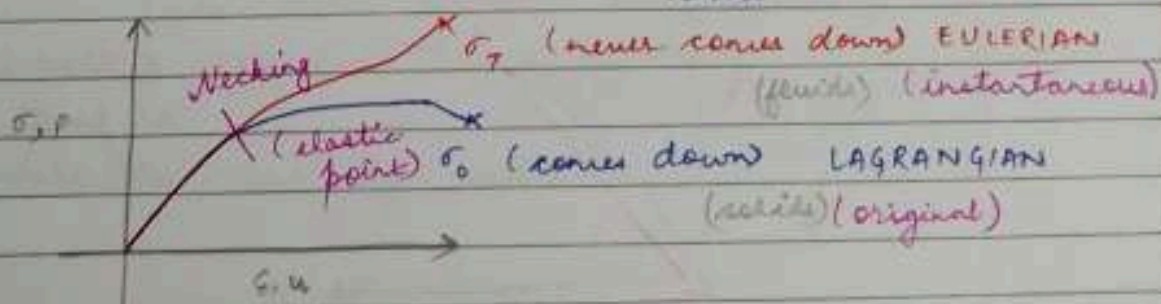 σ_T (never comes down) EULERIAN
Necking
(fluids) (instantaneous)
σ, P
(elastic
point) σ_0 (comes down) LAGRANGIAN
(solids) (original)
ε, u